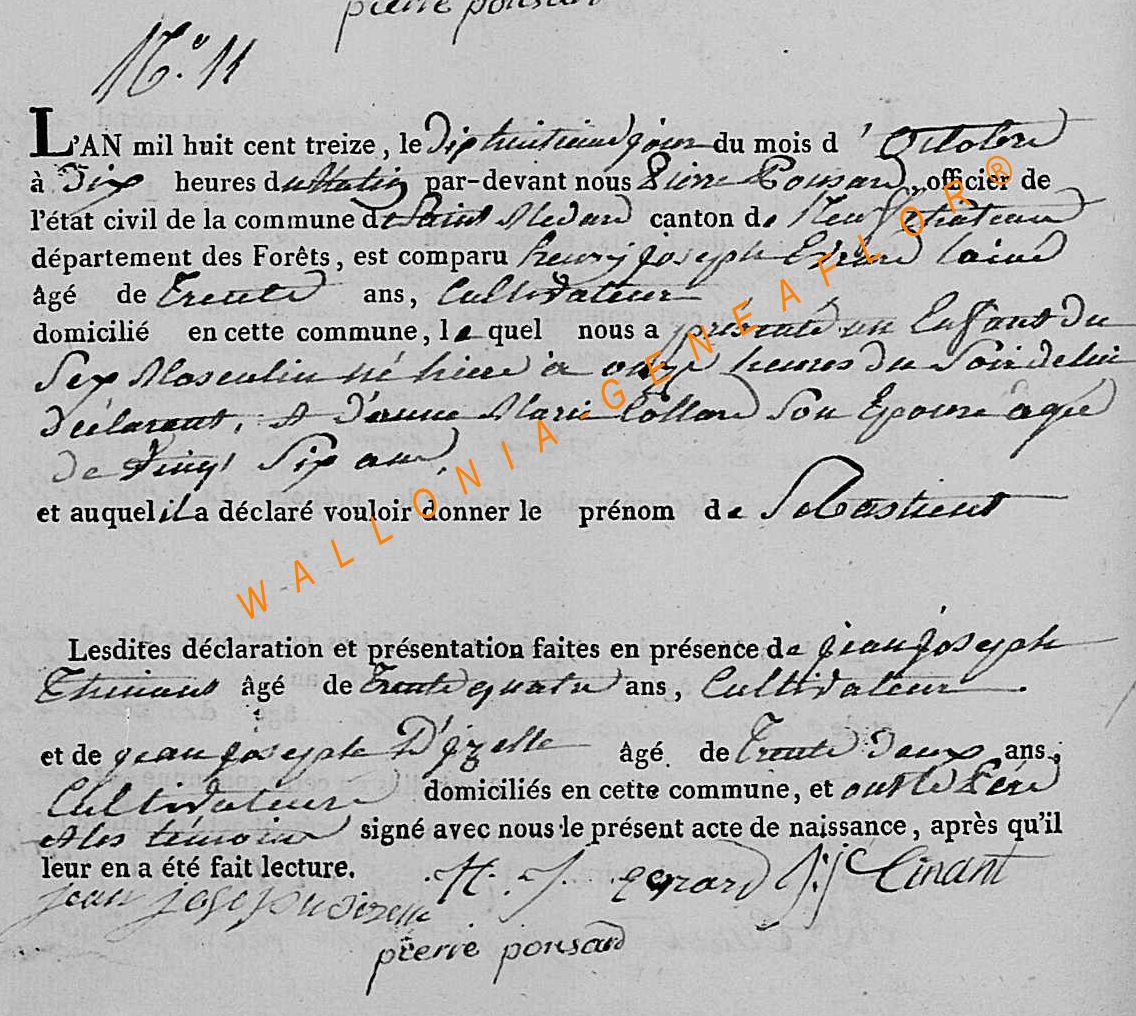 pierre ponsard
N.º 11
L'AN mil huit cent treize, le Dixhuitieme jour du mois d'Octobre
à Dix heures du Matin par-devant nous Pierre Ponsard, officier de
l'état civil de la commune de Saint Medard canton de Neufchateau
département des Forêts, est comparu henry joseph Evrard lainé
âgé de Trente ans, Cultivateur
domicilié en cette commune, lequel nous a présenté un Enfant Du
Sex Masculin né hiere à onze heures Du Soir de lui
Déclarant, et D'anne Marie Collard Son Epouse agée
De Vingt Six ans,
et auquel il a déclaré vouloir donner le prénom de Sebastient
Lesdites déclaration et présentation faites en présence de jean joseph
âgé de Trente quatre ans, Cultivateur.
et de jean joseph D'izelle âgé de Trente Deux ans,
Cultivateur domiciliés en cette commune, et ont le Pere
et les témoins signé avec nous le présent acte de naissance, après qu'il
leur en a été fait lecture. H. J. evrard J: j:
jean joseph dizelle
pierre ponsard
WALLONIA-GENEAFLOR®